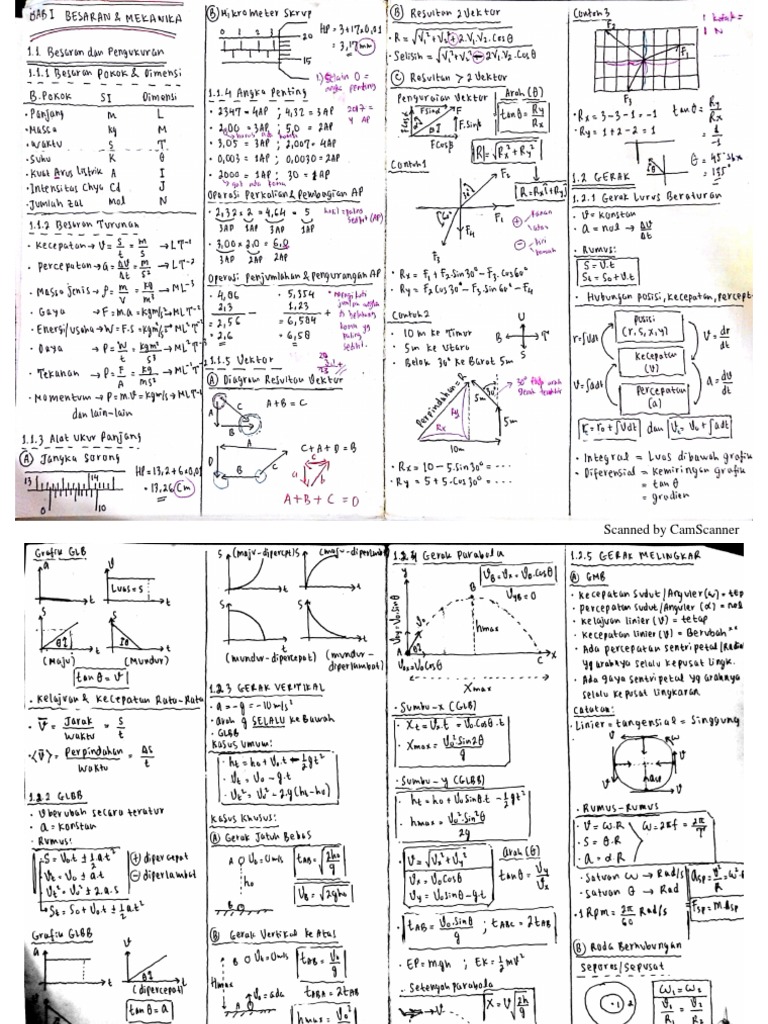 BAB I BESARAN & MEKANIKA
1.1 Besaran dan Pengukuran
1.1.1 Besaran Pokok & Dimensi
B.Pokok SI Dimensi
• Panjang m L
• Massa kg M
• Waktu s T
• Suhu K θ
• Kuat Arus Listrik A I
• Intensitas Chya Cd J
• Jumlah zat mol N
1.1.2 Besaran Turunan
• Kecepatan → V = S/t = m/s → LT⁻¹
• Percepatan → a = ΔV/Δt = m/s² → LT⁻²
• Massa jenis → ρ = m/V = kg/m³ → ML⁻³
• Gaya → F = m.a = kg m/s² → MLT⁻²
• Energi/usaha → W = F.s = kg m²/s² → ML²T⁻²
• Daya → P = W/t = kg m²/s³ → ML²T⁻³
• Tekanan → P = F/A = kg/ms² → ML⁻¹T⁻²
• Momentum → P = m.V = kg m/s → MLT⁻¹
dan lain-lain
1.1.3 Alat Ukur Panjang
(A) Jangka Sorong
13 14
0 10
HP = 13,2 + 6×0,01
= 13,26 cm
(B) Mikrometer Skrup
0 1 2 3
20
15
HP = 3 + 17×0,01
= 3,17 mm
1.1.4 Angka Penting
1) Selain 0 = angka penting
• 2347 = 4AP ; 4,32 = 3AP
• 2,00 = 3AP ; 5,0 = 2AP
• 3,05 = 3AP ; 2,007 = 4AP
• 0,003 = 1AP ; 0,0030 = 2AP
• 2000 = 1AP ; 30 = 1AP
Operasi Perkalian & Pembagian AP
• 2,32 × 2 = 4,64 = 5
3AP 1AP 3AP 1AP
• 3,00 × 2,0 = 6,0
3AP 2AP 2AP
Operasi Penjumlahan & Pengurangan AP
• 4,86
2,3
-
• 2,56
• 2,6
5,354
1,23
+
= 6,584
= 6,58
1.1.5 Vektor
(A) Diagram Resultan Vektor
A + B = C
A
B
C
A
D
B
C
C + A + D = B
A + B + C = 0
(B) Resultan 2 Vektor
• R = √V₁² + V₂² + 2.V₁.V₂.Cosθ
• Selisih = √V₁² + V₂² - 2V₁.V₂.Cosθ
(C) Resultan > 2 Vektor
Penguraian Vektor
F Sinβ
F
F Cosβ
F.Sinβ
Arah (θ)
tanθ = Ry/Rx
|R| = √Rx² + Ry²
Contoh 1
F₂
30°
60°
F₁
F₄
F₃
• Rx = F₁ + F₂.Sin30° - F₃.Cos60°
• Ry = F₂ Cos30° - F₃.Sin60° - F₄
Contoh 2
• 10 m ke Timur
• 5m ke Utara
• Belok 30° ke Barat 5m
U
B
T
S
Perpindahan = R
Ry
Rx
30°
5m
5m
10m
• Rx = 10 - 5.Sin30° = ....
• Ry = 5 + 5.Cos30° = ....
Contoh 3
1 kotak =
1 N
F₂
F₁
F₃
• Rx = 3-3-1 = -1
• Ry = 1+2-2 = 1
tanθ = Ry/Rx
= 1/-1
θ = 45°
= 135°
1.2 GERAK
1.2.1 Gerak Lurus Beraturan
• V = Konstan
• a = nol → ΔV/Δt
• Rumus:
S = V.t
St = S₀ + V.t
• Hubungan posisi, kecepatan, percept
posisi
(r, s, x, y)
Kecepatan
(V)
Percepatan
(a)
r = ∫vdt
V = ∫adt
V = dr/dt
a = dV/dt
r = r₀ + ∫Vdt dan Vt = V₀ + ∫adt
• Integral = Luas dibawah grafik
• Diferensial = Kemiringan grafik
= tan θ
= gradien
Scanned by CamScanner
Grafik GLB
a
t
V
LUAS = S
t
S
θ
t
(Maju)
S
θ
t
(Mundur)
tan θ = V
• Kelajuan & Kecepatan Rata-Rata
• V̄ = Jarak/Waktu = S/t
• ⟨v̄⟩ = Perpindahan/Waktu = ΔS/t
1.2.2 GLBB
• V berubah secara teratur
• a = Konstan
• Rumus:
S = V₀t ± ½ at²
Vt = V₀ ± a.t
Vt² = V₀² ± 2.a.s
St = S₀ + V₀t ± ½ a.t²
(+) dipercepat
(-) diperlambat
Grafik GLBB
a
t
V
θ
t
(dipercepat)
tan θ = a
S
(maju-dipercpt)
t
S
(maju-diperlambat
t
S
t
(mundur-dipercepat)
S
t
(mundur-
diperlambat)
1.2.3 GERAK VERTIKAL
• a = -g = -10 m/s²
• arah g SELALU ke Bawah
• GLBB
Kasus Umum:
ht = h₀ + V₀.t - ½gt²
Vt = V₀ - g.t
Vt² = V₀² - 2.g(ht-h₀)
Kasus Khusus:
(A) Gerak Jatuh Bebas
A
V₀ = 0 m/s
h₀
B
tAB = √2h₀/g
VB = √2gh₀
(B) Gerak Vertikal ke Atas
B
Vt = 0 m/s
Hmax
A
V₀ = ada
tAB = V₀/g
tABA = 2tAB
hmax = V₀²
1.2.4 Gerak Parabola
VB = Vx = V₀.Cosθ
VyB = 0
y
V₀y = V₀Sinθ
V₀
B
hmax
A
V₀x = V₀Cosθ
C
x
Xmax
• Sumbu-x (GLB)
Xt = Vx.t = V₀.Cosθ.t
Xmax = V₀²Sin2θ/g
• Sumbu-y (GLBB)
• ht = h₀ + V₀Sinθ.t - ½gt²
• hmax = V₀².Sin²θ/2g
• V = √Vx² + Vy²
Vx = V₀Cosθ
Vy = V₀Sinθ - g.t
Arah (θ)
tanθ = Vy/Vx
• tAB = V₀.Sinθ/g ; tABC = 2tAB
• EP = mgh ; EK = ½mV²
• Setengah Parabola
X = V√2h/g
1.2.5 GERAK MELINGKAR
(A) GMB
• Kecepatan Sudut/Anguler (ω) = tep
• Percepatan Sudut/Anguler (α) = nol
• Kelajuan linier (V) = tetap
• Kecepatan linier (V) = Berubah²
• Ada percepatan sentripetal
yg arahnya selalu kepusat lingk.
• Ada gaya sentripetal yg arahnya
selalu kepusat lingkaran
Catatan:
• Linier = tangensial = Singgung
V
ω
V
V
V
• Rumus-Rumus
• V = ω.R
• S = θ.R
• a = α.R
ω = 2πf = 2π/T
• Satuan ω → Rad/s
• Satuan θ → Rad
• 1 Rpm = 2π/60 Rad/s
asp = V²/R = ω²
Fsp = m.asp
(B) Roda Berhubungan
Seporos/Sepusat
1
2
ω₁ = ω₂
V₁/R₁ = V₂/R₂